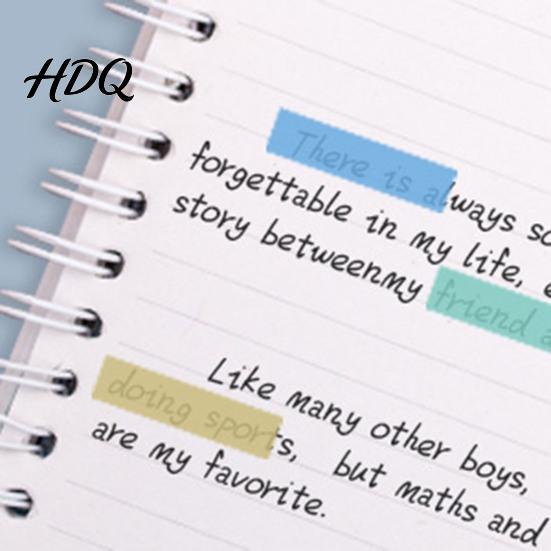 HDQ
There is always so
forgettable in my life, e
story betweenmy friend a
Like many other boys,
doing sports, but maths and
are my favorite.